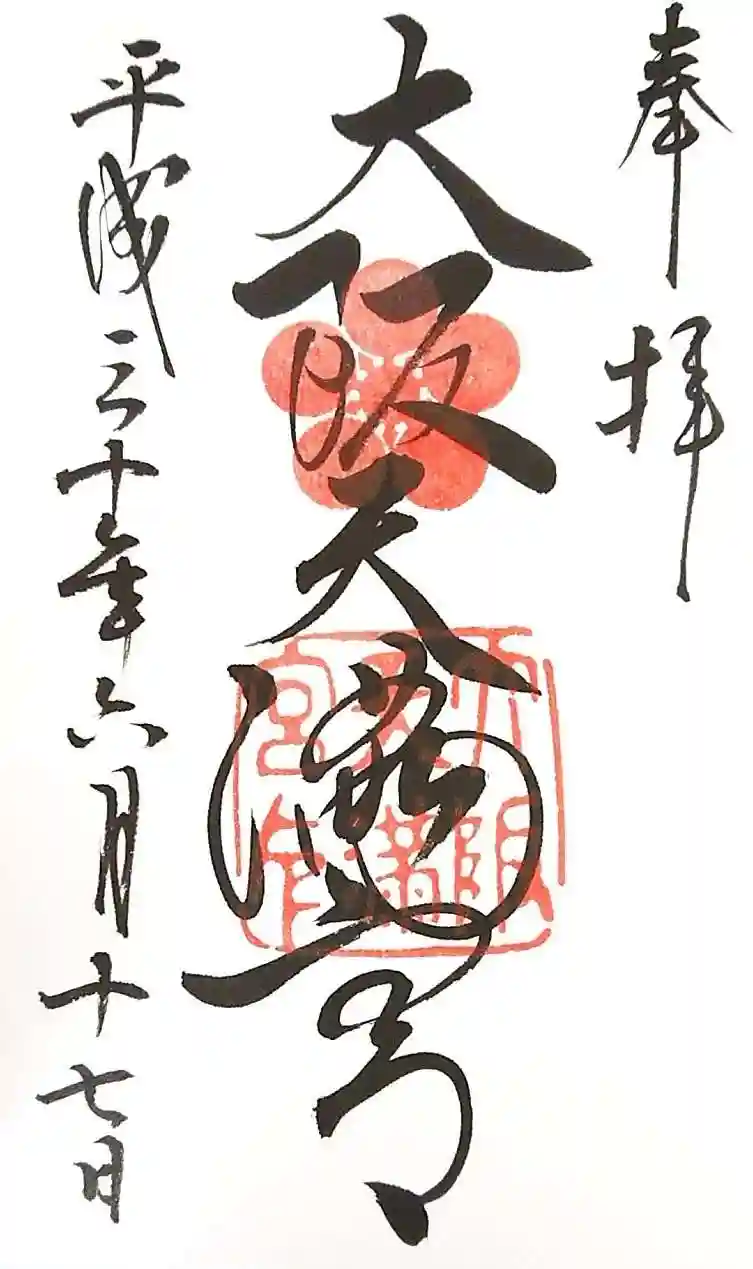 奉拝
大阪天満宮
平成三十年六月十七日
大阪
天満
宮印